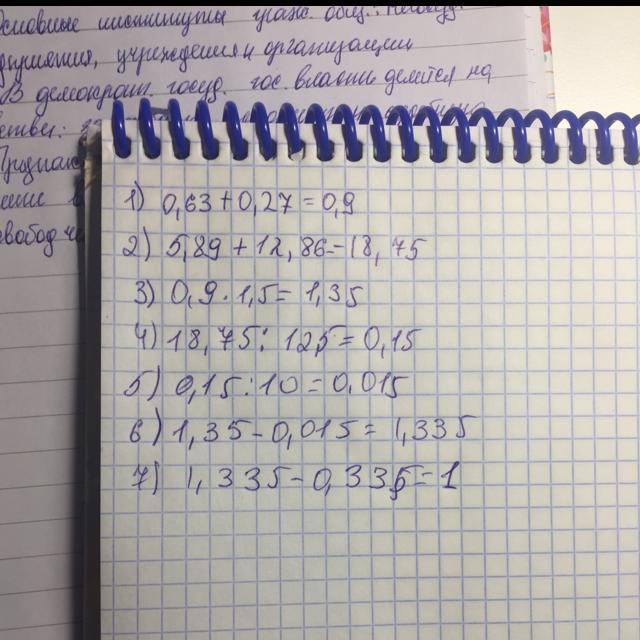 Основные институты гражд. общ.:
учреждения и организации
В демократ. госуд. гос. власть делится на
1) 0,63+0,27=0,9
2) 5,89+12,86=18,75
3) 0,9·1,5=1,35
4) 18,75:125=0,15
5) 0,15:10=0.015
6) 1,35-0,015=1,335
7) 1,335-0,335=1